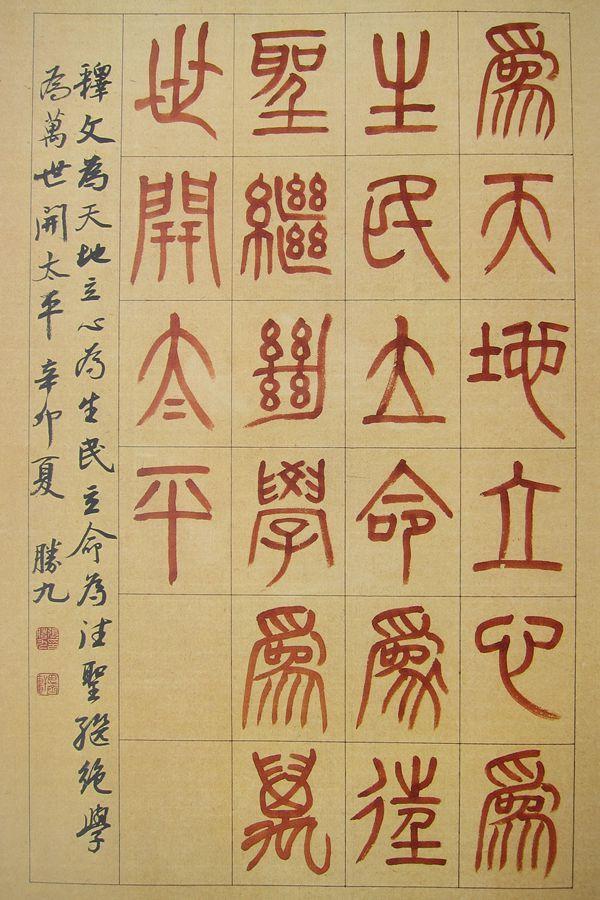 爲天地立心爲
生民立命爲往
聖繼絕學爲萬
世開太平
釋文為天地立心為生民立命為往聖繼絕學
為萬世開太平 辛卯夏 勝九